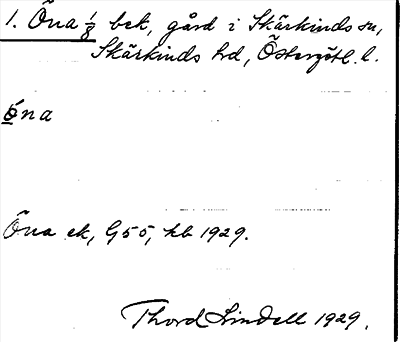 1. Öna 1/8 bek, gård i Skärkinds sn,
Skärkinds hd, Östergötl. l.
óna
Öna ek, G55, hb 1929.
Thord Lindell 1929.